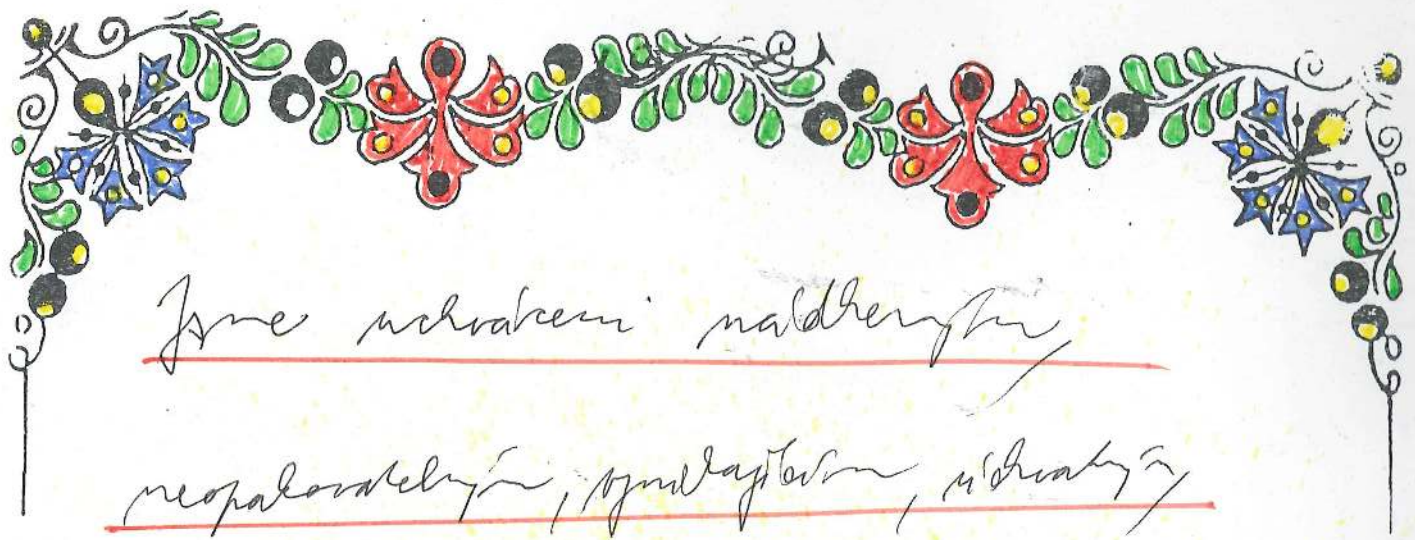 Jsme uchváceni nádherným,
neopakovatelným, vynikajícím, úchvatným,